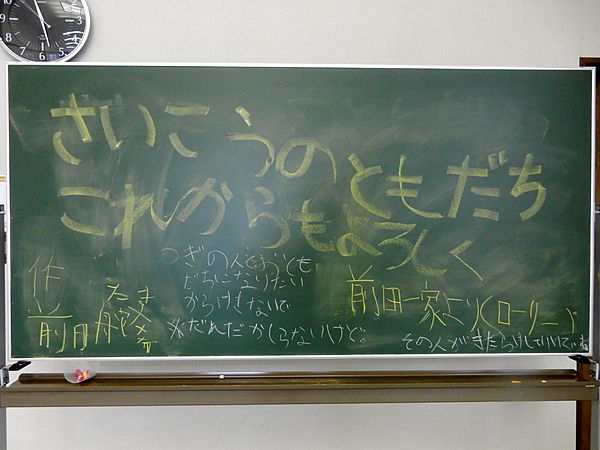 さいこうのともだち
これからもよろしく
つぎの人とずっとも
だちになりたい
からけさないで
※だれだかしらないけど。
作
前田
前田一家より(ローリー)
その人がきたらけしていいでいね